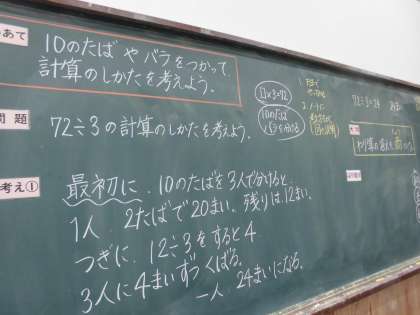 めあて
10のたばやバラをつかって
計算のしかたを考えよう。
問題
72÷3の計算のしかたを考えよう。
考え①
最初に、10のたばを3人で分けると、
1人 2たばで20まい。残りは12まい。
つぎに、12÷3をすると4
3人に4まいずつくばる。
一人 24まいになる。
□×3=72
10のたば
バラで分ける
72÷3=24